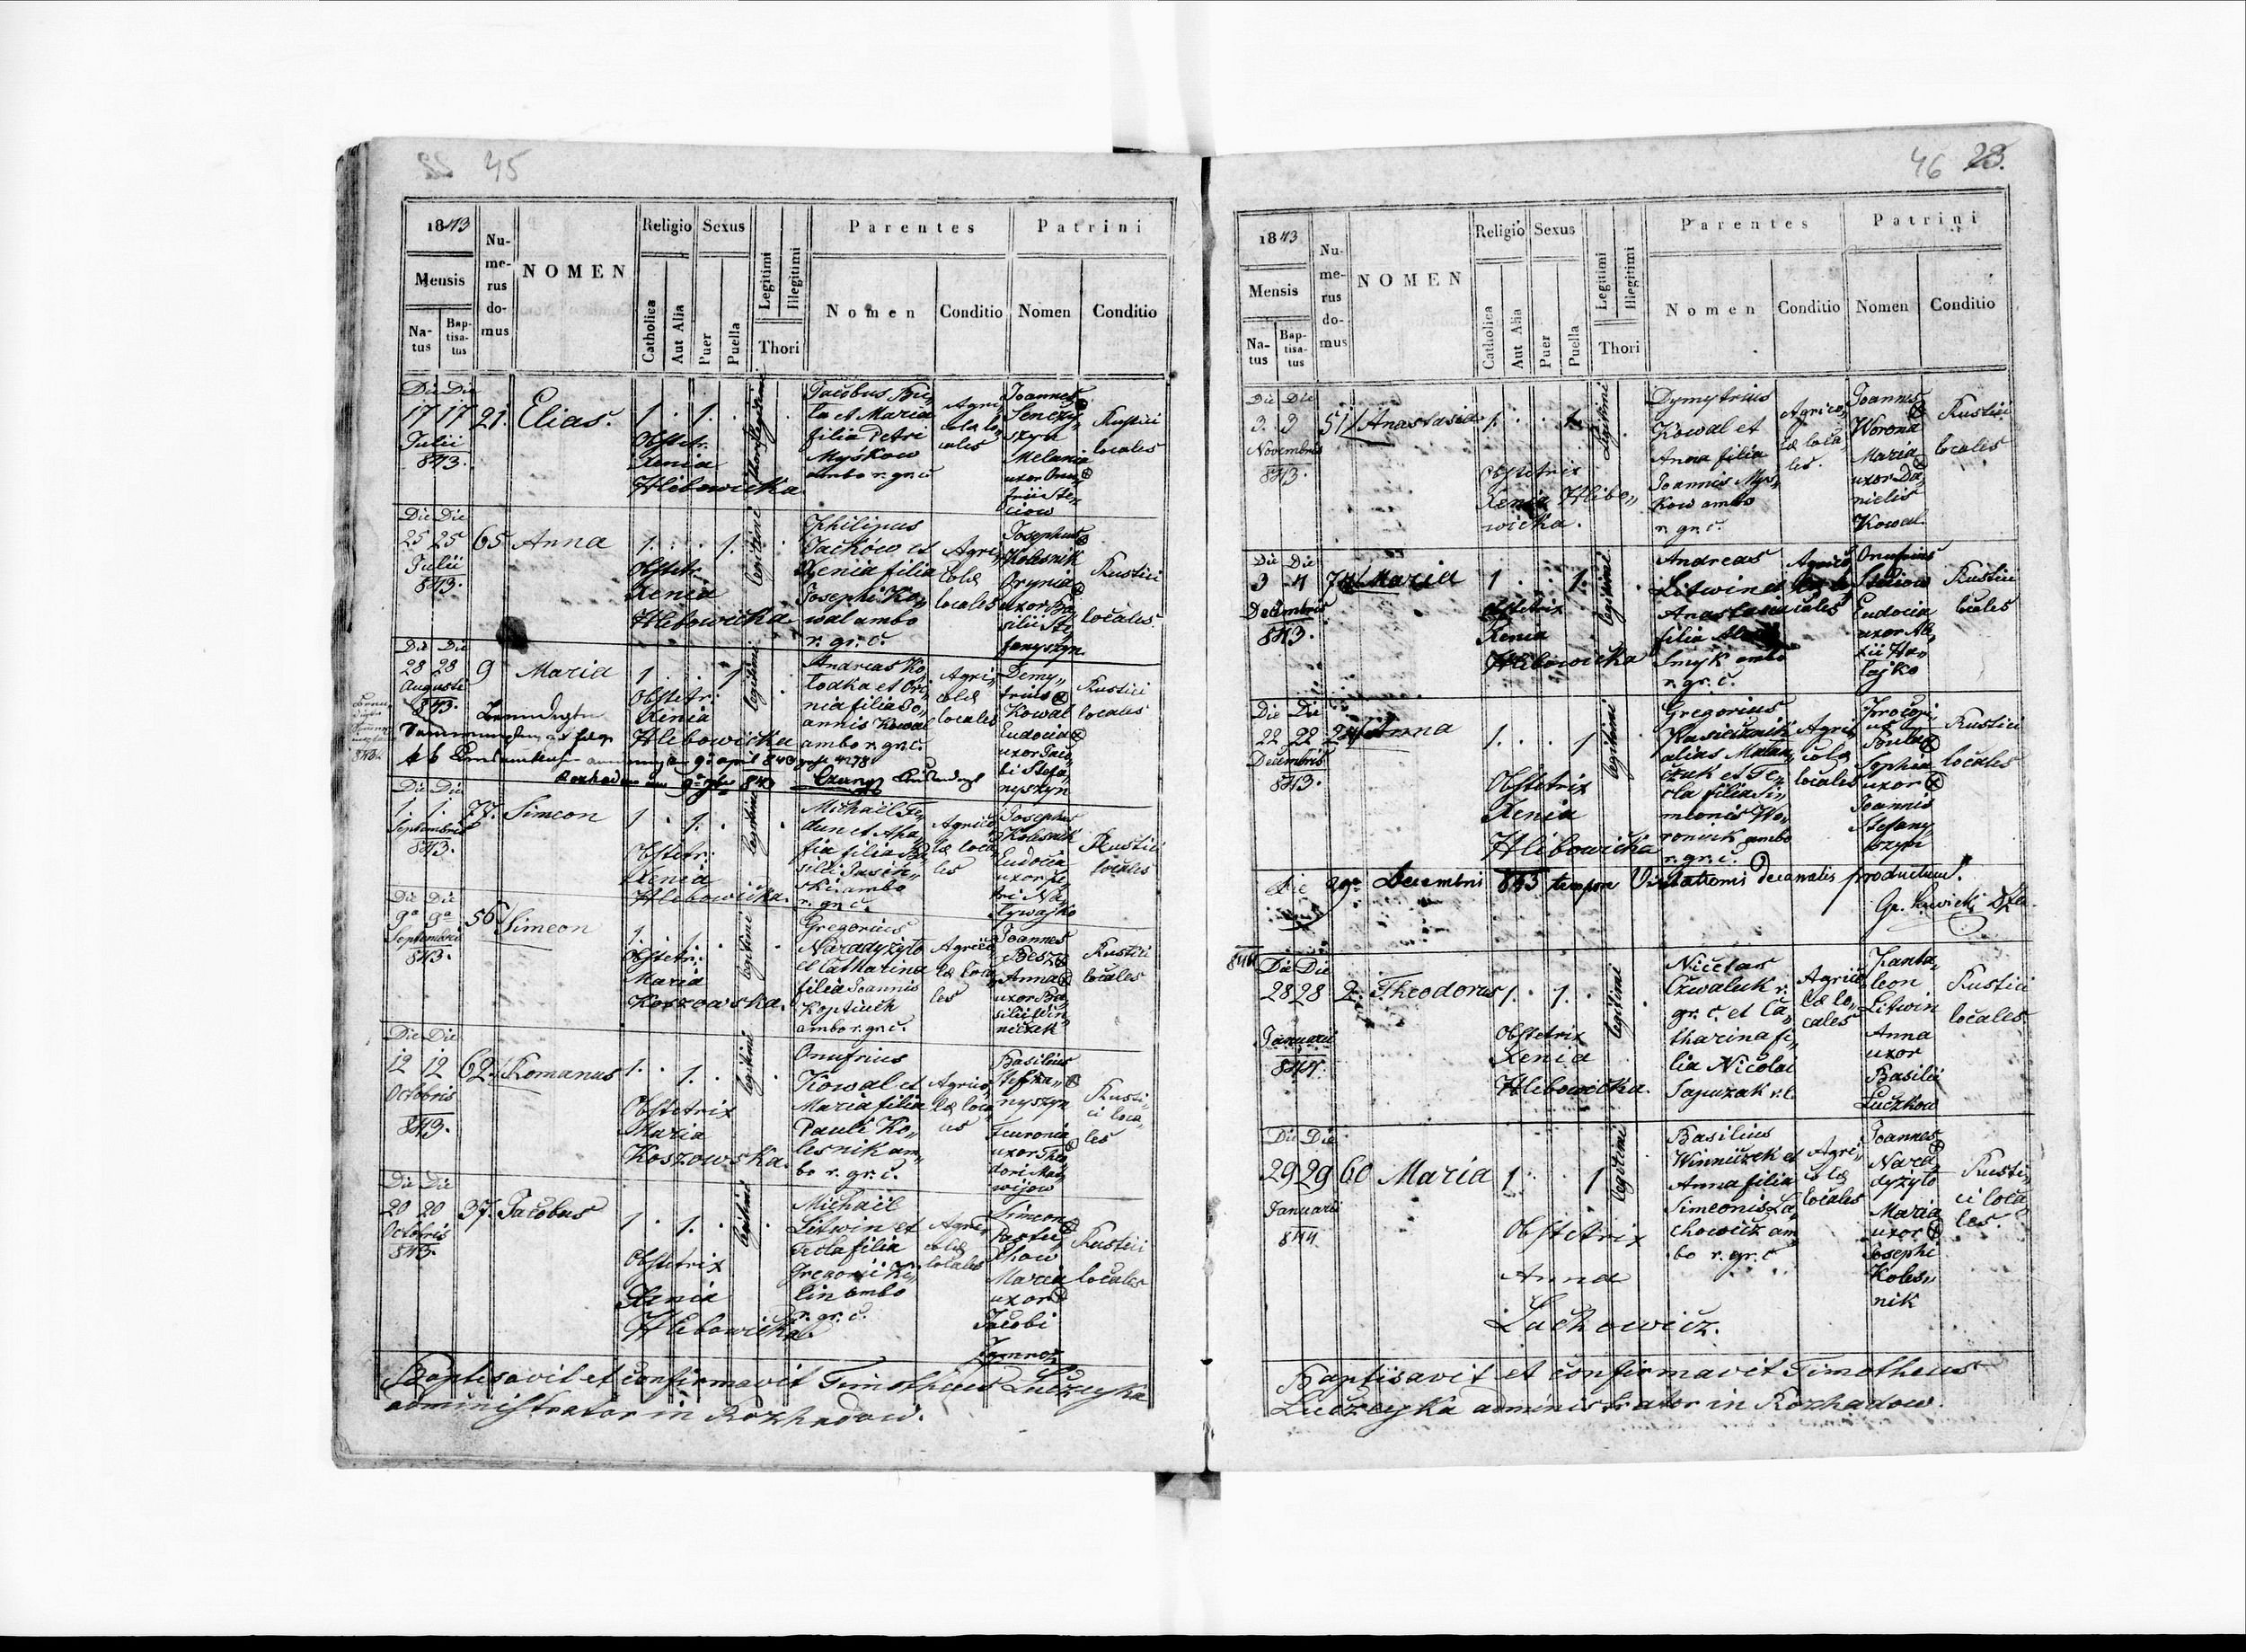 45
1843
Mensis
Na-
tus
Bap-
tisa-
tus
Nu-
me-
rus
do-
mus
NOMEN
Religio
Catholica
Aut Alia
Sexus
Puer
Puella
Legitimi
Illegitimi
Thori
Parentes
Nomen
Conditio
Patrini
Nomen
Conditio
Die Die
17 17
Julii
843.
21.
Elias.
1. 1.
Obstetr.
Xenia
Hlibowicka
Jacobus
ta et Maria
filia Petri
Myskow
ambo r. gr. c.
Agri„
colæ lo„
cales
Joannes
szyn
Melania
uxor Onu„
frii Ste„
ciow
Rustici
locales
Die Die
25 25
Julii
843.
65
Anna
1. 1.
Obstetr.
Xenia
Hlibowicka
legitimi
Philipus
Jackow et
Xenia filia
Josephi Ko„
wal ambo
r. gr. c.
Agri„
colæ
locales
Josephus
Kolesnik
Irynia
uxor Ba„
silii Ste„
fanyszyn
Rustici
locales.
Die Die
28 28
Augusti
843.
9
Maria
1 1
Obstetr.
Xenia
Hlibowicka
legitimi
Andreas Ko„
lodka et Ori„
nia filia Jo„
annis Kowal
ambo r. gr. c.
Agri„
colæ
locales
Demy„
trius
Kowal
Eudocia
uxor Jaco„
bi Stefa„
nyszyn
Rustici
locales
Die Die
1. 1.
Septembris
843.
77.
Simeon
1. 1.
Obstetr.
Xenia
Hlibowicka.
legitimi
Michael Fe„
dun et Apa„
fia filia Ba„
silii Jasin„
ski ambo
r. gr. c.
Agrico„
læ loca„
les
Josephus
Kolesnik
Eudocia
uxor Pe„
tri Na„
lywajko
Rustici
locales
Die Die
9ª 9ª
Septembris
843.
56
Simeon
1.
Obstetr.
Maria
Koszowska.
legitimi
Gregorius
Naradyzyto
et Catharina
filia Joannis
Koptiuch
ambo r. gr. c.
Agrico„
læ loca„
les
Joannes
Anna
uxor Ba„
silii Win„
niczek
Rustici
locales
Die Die
12 12
Octobris
843.
62.
Romanus
1. 1.
Obstetrix
Maria
Koszowska.
legitimi
Onufrius
Kowal et
Maria filia
Pauli Ko„
lesnik am„
bo r. gr. c.
Agrico„
læ loca„
les
Basilius
Stefa„
nyszyn
Feuronia
uxor Theo„
dori Mat„
wijow
Rusti„
ci loca„
les
Die Die
20 20
Octobris
843.
37.
Jacobus
1. 1.
Obstetrix
Xenia
Hlibowicka.
legitimi
Michael
Litwin et
Tecla filia
Gregorii
lin ambo
r. gr. c.
Agri„
colæ
locales
Simeon
Pastu„
chow
Maria
uxor
Jacobi
Rustici
locales
Baptisavit et confirmavit Timotheus Luczejka
administrator in Rozhadow.
46 23.
1843
Mensis
Na-
tus
Bap-
tisa-
tus
Nu-
me-
rus
do-
mus
NOMEN
Religio
Catholica
Aut Alia
Sexus
Puer
Puella
Legitimi
Illegitimi
Thori
Parentes
Nomen
Conditio
Patrini
Nomen
Conditio
Die Die
3. 3
Novembris
843.
51
Anastasia
1. 1.
Obstetrix
Xenia Hlibo„
wicka.
legitimi
Dymytrius
Kowal et
Anna filia
Joannis Mys„
kow ambo
r. gr. c.
Agrico„
læ loca„
les.
Joannes
Worona
Maria
uxor Da„
nielis
Kowal
Rustici
locales
Die Die
3 4
Decembris
843.
74
Maria
1 1.
Obstetrix
Xenia
Hlibowicka
legitimi
Andreas
Litwin et
Anastasia
filia
Smyk ambo
r. gr. c.
Agrico„
cales
Onufrius
Steciow
Eudocia
uxor Ale„
xii Ha„
lajko
Rustici
locales
Die Die
22 22
Decembris
843.
24
Anna
1. 1
Obstetrix
Xenia
Hlibowicka
legitimi
Gregorius
alias Malan„
czuk et Te„
cla filia Si„
meonis Wo„
roniuk ambo
r. gr. c.
Agri„
colæ
locales
Sophia
uxor
Joannis
Stefany„
szyn
Rustici
locales
Die 29ª Decembris 843 tempore Visitationis decanalis productum.
844
Die Die
28 28
Januarii
844.
2.
Theodorus
1. 1.
Obstetrix
Xenia
Hlibowicka.
legitimi
Nicetas
Czwaluk r.
gr. c. et Ca„
tharina fi„
lia Nicolai
Sapuzak r. l.
Agrico„
læ lo„
cales
Panta„
leon
Litwin
Anna
uxor
Basilii
Luczkow
Rustici
locales
Die Die
29 29
Januarii
844.
60
Maria
1 1
Obstetrix
Anna
Lachowicz.
legitimi
Basilius
Winniczek et
Anna filia
Simeonis La„
chowicz am„
bo r. gr. c.
Agri„
colæ
locales
Joannes
Nara„
dyzyto
Maria
uxor
Josephi
Koles„
nik
Rusti„
ci loca„
les.
Baptisavit et confirmavit Timotheus
Luczejka administrator in Rozhadow.